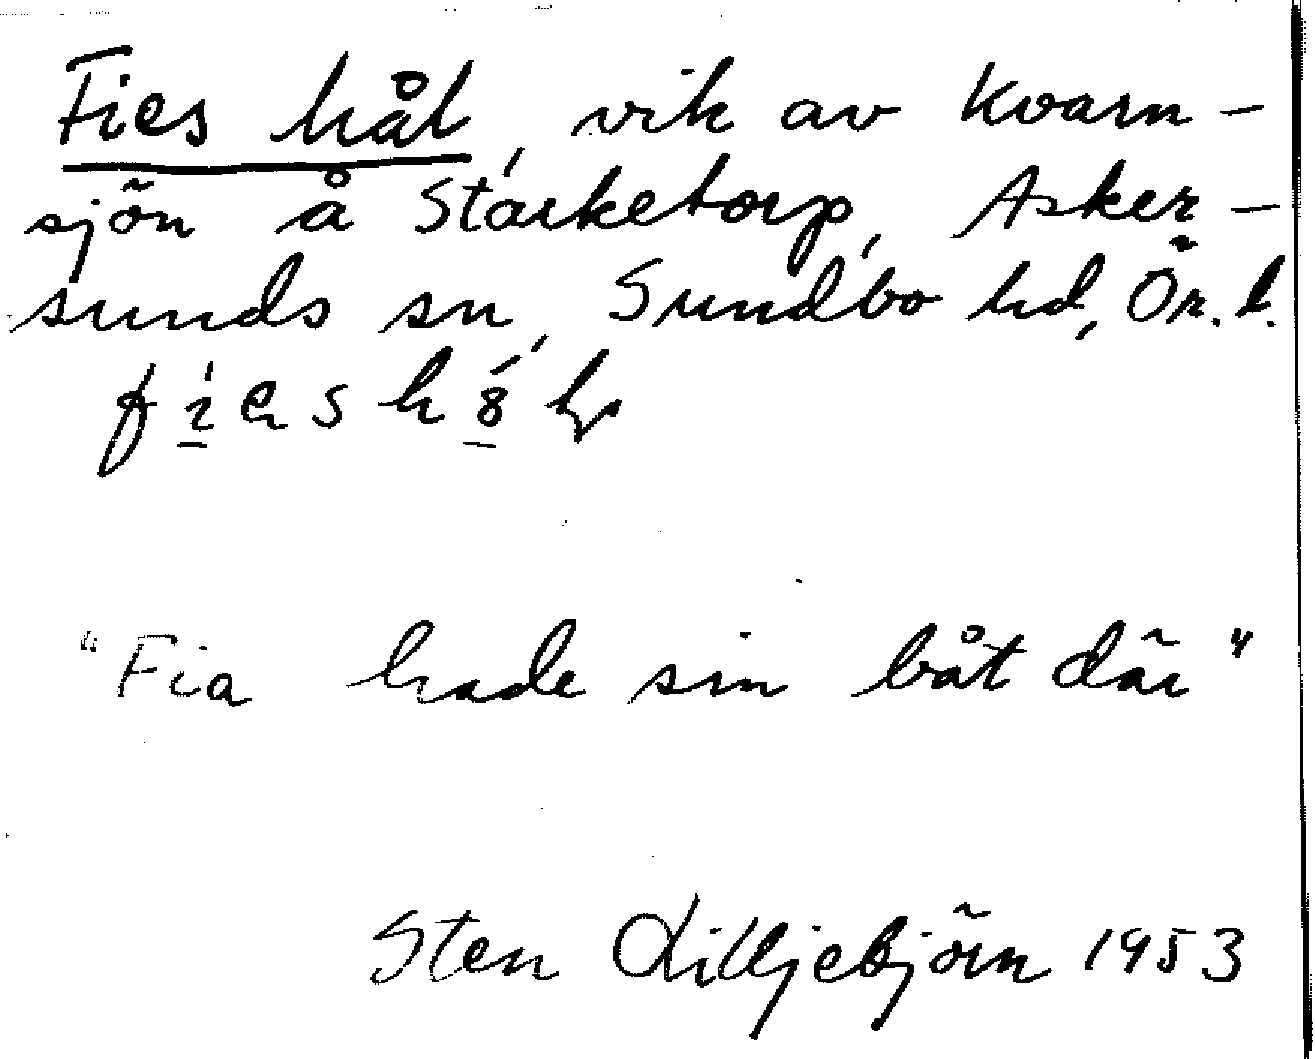 Fies hål, vik av Kvarn-
sjön å Starketorp, Asker-
sunds sn, Sundbo hd, Ör. l.
"Fia hade sin båt där"
Sten Lilljebjörn 1953